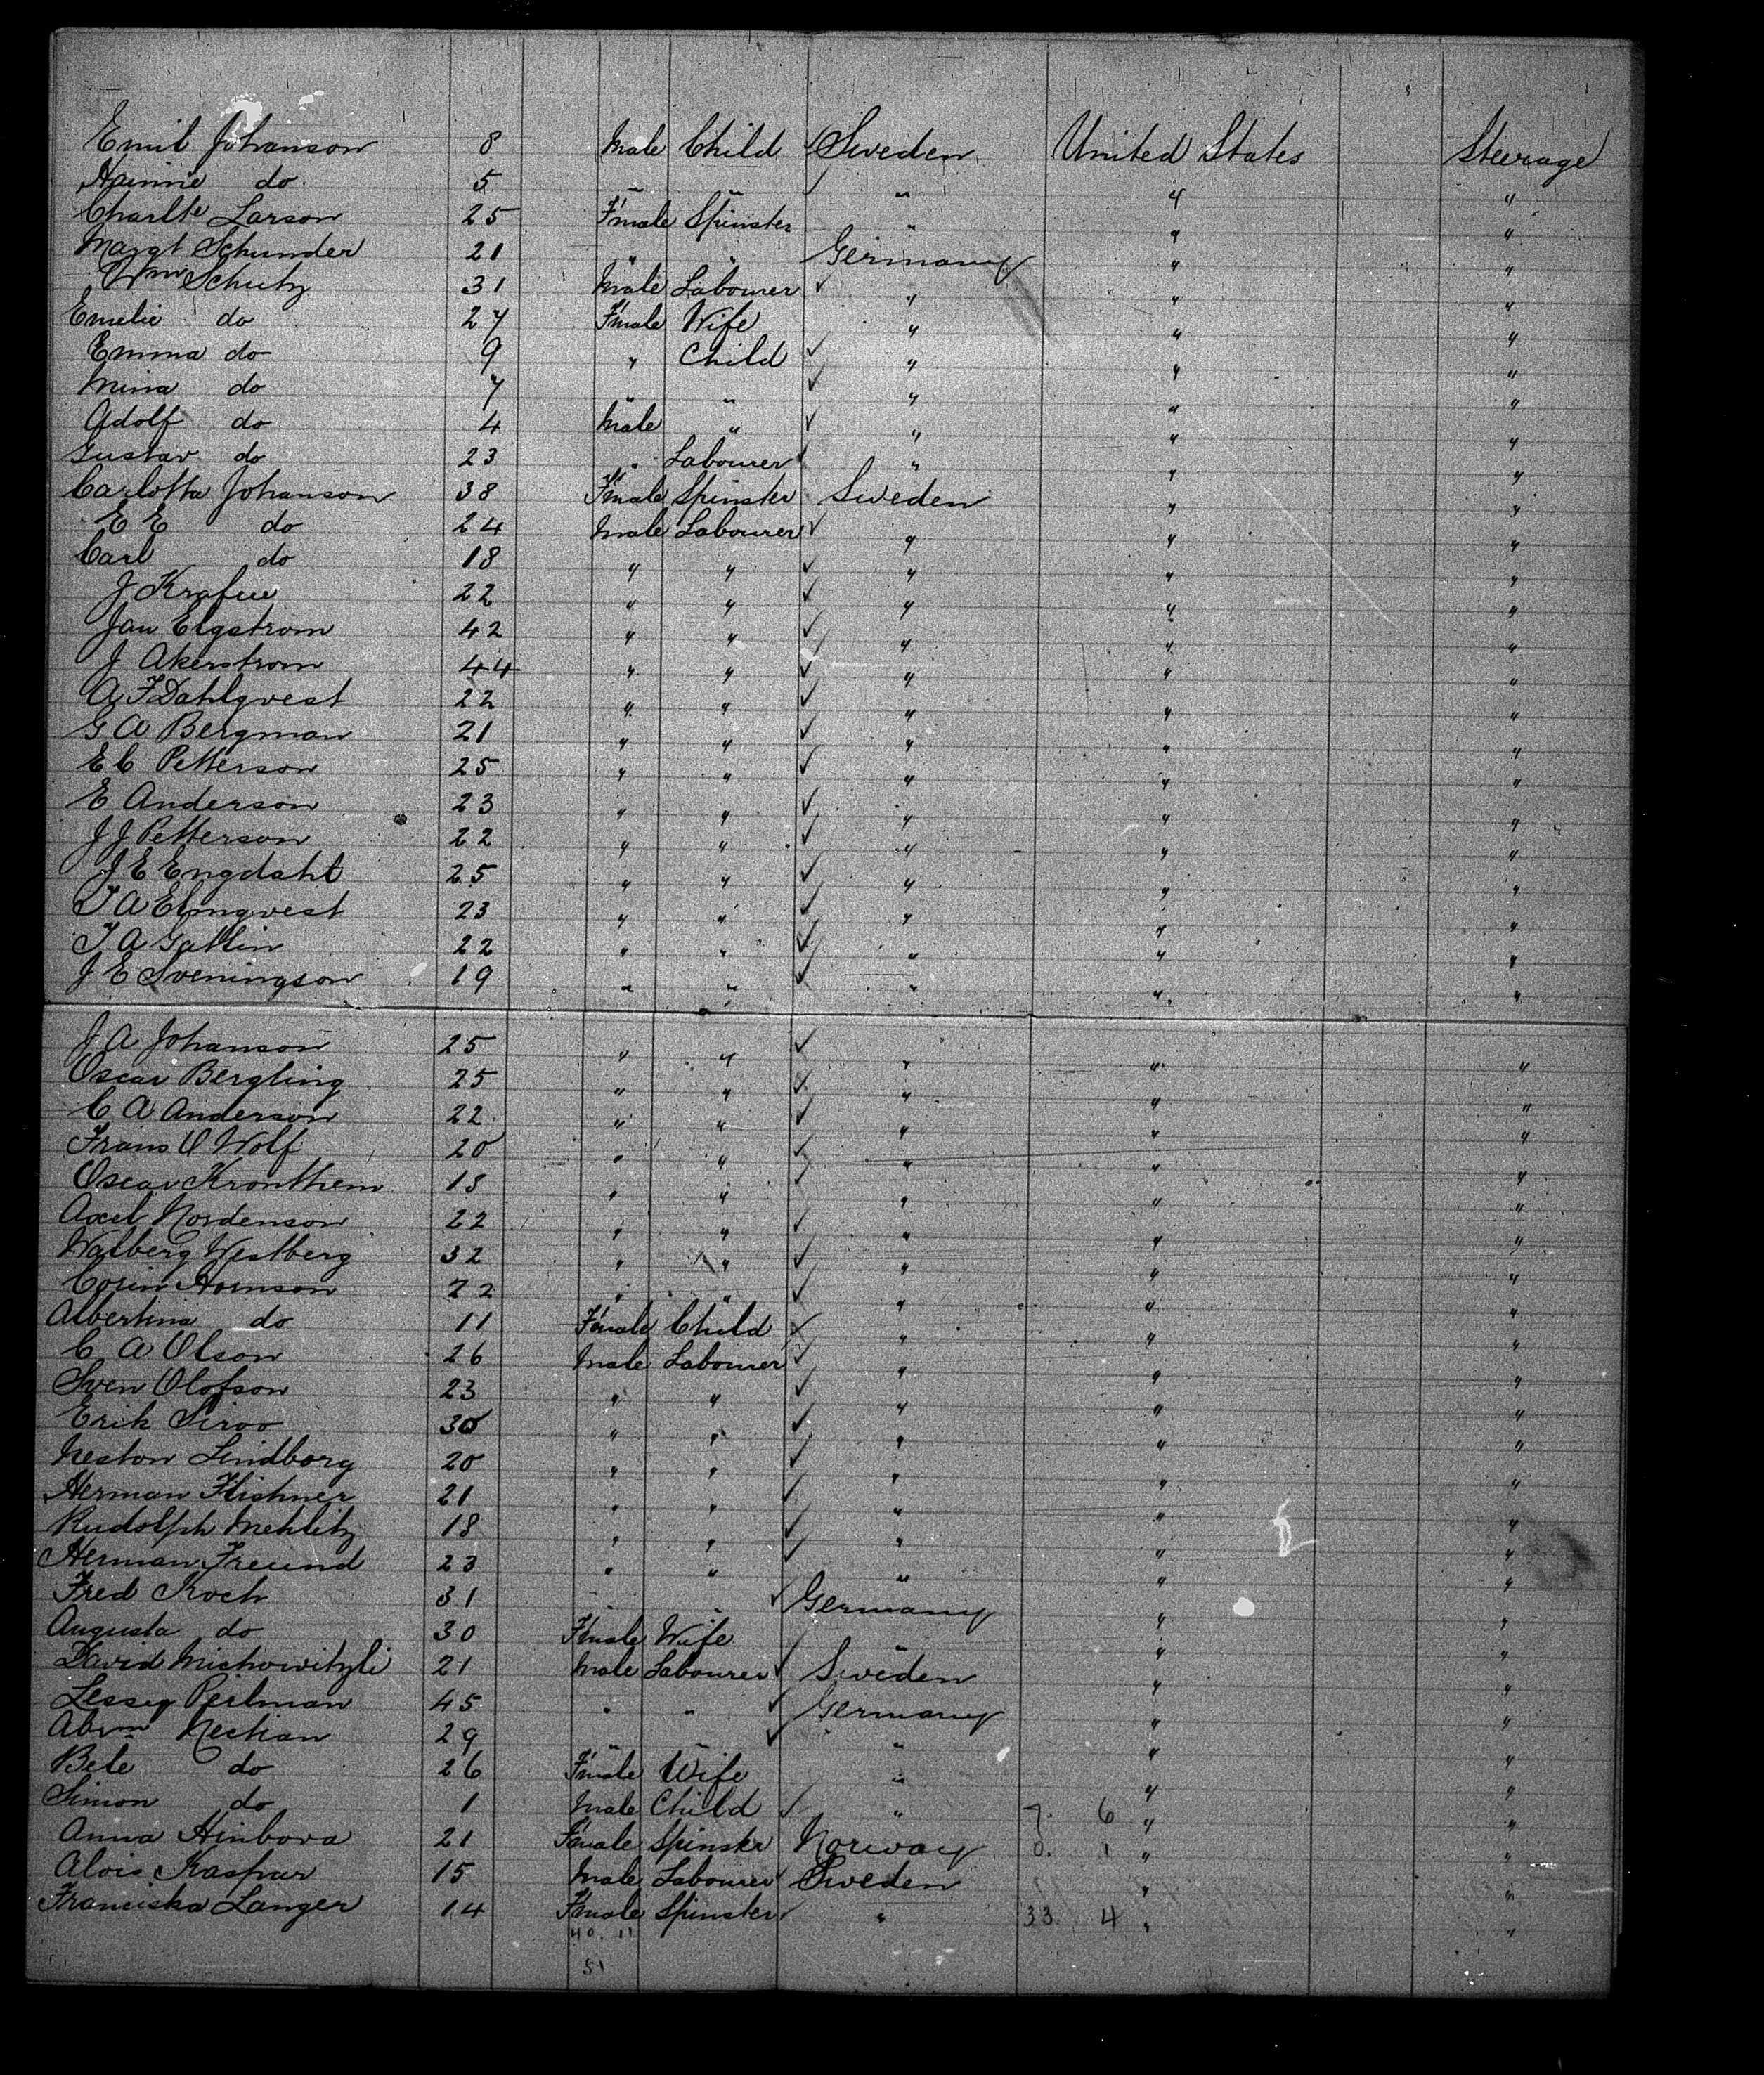 Emil Johanson 8 Male Child Sweden United States Steerage
Hannie do 5 " " " " "
Charltte Larson 25 Fmale Spinster " " "
Margt Schunder 21 " " Germany " "
Wm Schutz 31 Male Labourer " " "
Emelie do 27 Fmale Wife " " "
Emma do 9 " Child " " "
Mina do 7 " " " " "
Adolf do 4 Male " " " "
Gustav do 23 " Labourer " " "
Carlotta Johanson 38 Fmale Spinster Sweden " "
E E do 24 Male Labourer " " "
Carl do 18 " " " " "
J 22 " " " " "
Jan Elgstrom 42 " " " " "
J Akerstrom 44 " " " " "
A F Dahlqvest 22 " " " " "
G A Bergman 21 " " " " "
E C Petterson 25 " " " " "
E Anderson 23 " " " " "
J J Petterson 22 " " " " "
J E Engdahl 25 " " " " "
T A Elmqvest 23 " " " " "
T A Gallin 22 " " " " "
J E Sveningson 19 " " " " "
J A Johanson 25 " " " " "
Oscar Bergling 25 " " " " "
C A Anderson 22 " " " " "
Frans O Wolf 20 " " " " "
Oscar Kronthem 18 " " " " "
Axel Nordenson 22 " " " " "
Walberg Westberg 32 " " " " "
Corin Hornson 22 " " " " "
Albertina do 11 Fmale Child " " "
C A Olson 26 Male Labourer " " "
Sven Olofson 23 " " " " "
Erik Siroo 30 " " " " "
Neston Lindborg 20 " " " " "
Herman Flishner 21 " " " " "
Rudolph Mehlitz 18 " " " " "
Herman Freund 23 " " " " "
Fred Koch 31 " " Germany " "
Augusta do 30 Fmale Wife " " "
David 21 Male Labourer Sweden " "
Perlman 45 " " Germany " "
Abrm Nechan 29 " " " " "
Bele do 26 Fmale Wife " " "
Simon do 1 Male Child " 7. 6 " "
Anna Hinbova 21 Fmale Spinster Norway 0. 1 " "
Alois Kaspar 15 Male Labourer Sweden " "
Franciska Langer 14 Fmale Spinster " 33 4 " "
40. 11
51